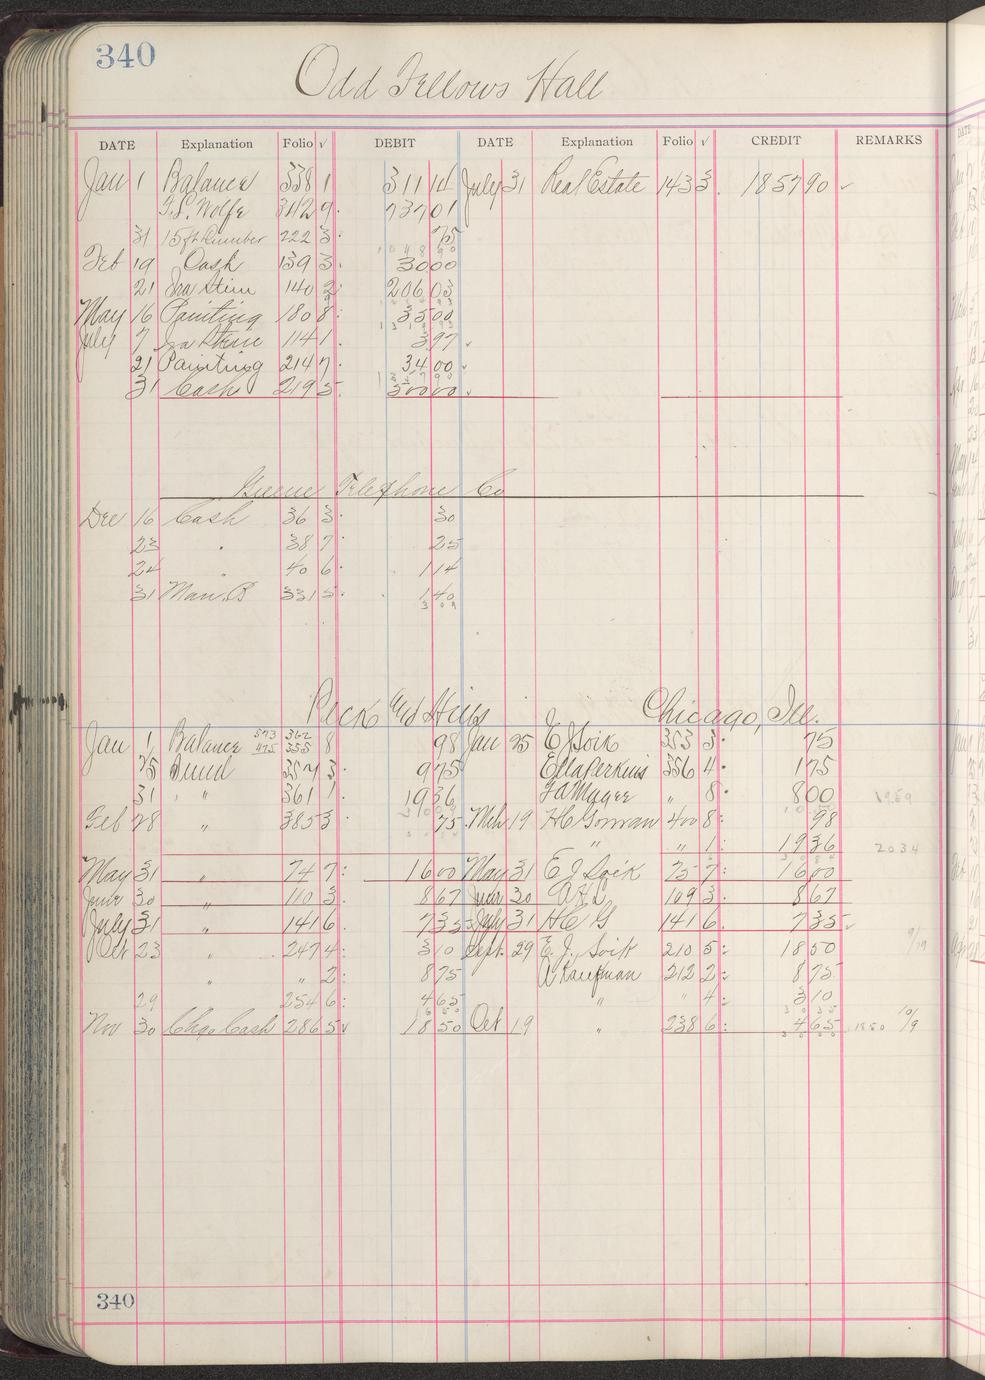 340
Odd Fellows Hall
DATE Explanation Folio √ DEBIT DATE Explanation Folio √ CREDIT REMARKS
Jan 1 Balance 338 1 311 14 July 31 Real Estate 143 3 1857 90
Wolfe 342 9 737 01
31 222 3 75
Feb 19 Cash 139 3 30 00
21 140 2 206 03
May 16 Painting 180 8 35 00
July 7 114 1 3 97
21 Painting 214 7 34 00
31 Cash 219 5 500 00
Greene Telephone Co
Dec 16 Cash 36 3 30
23 " 38 7 25
24 " 40 6 1 14
31 Man. B 331 5 1 40
3 09
Peck and Hills Chicago, Ill.
Jan 1 Balance 355 8 98 Jan 25 E J Soik 353 3 75
25 357 3 9 75 Ella Perkins 356 4 1 75
31 " 361 1 19 36 " 8 8 00 1959
Feb 28 " 385 3 75 Mch 19 H C Gorman 400 8 98
" " 1 19 36 2034
May 31 " 74 7 16 00 May 31 E J Soik 75 7 16 00
June 30 " 110 3 8 67 June 30 109 3 8 67
July 31 " 141 6 7 35 July 31 H C G 141 6 7 35
Oct 23 " 247 4 3 10 Sept. 29 E. J. Soik 210 5 18 50
" " 2 8 75 A Kaufman 212 2 8 75
29 " 254 6 4 65 " " 4 3 10
Nov 30 Chgo Cash 286 5 18 50 Oct 19 " 238 6 4 65 1850 10/9
340